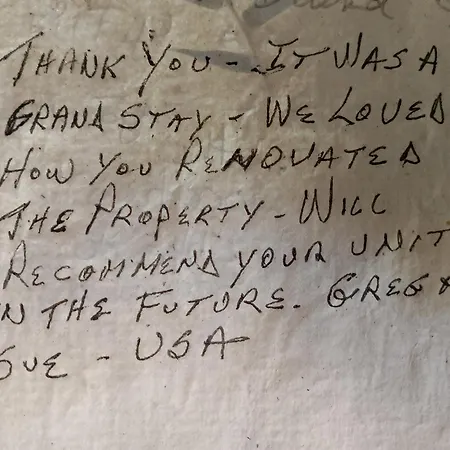 THANK YOU - IT WAS A
GRAND STAY - WE LOVED
HOW YOU RENOVATED
THE PROPERTY - WILL
RECOMMEND YOUR UNIT
IN THE FUTURE. GREG &
SUE - USA